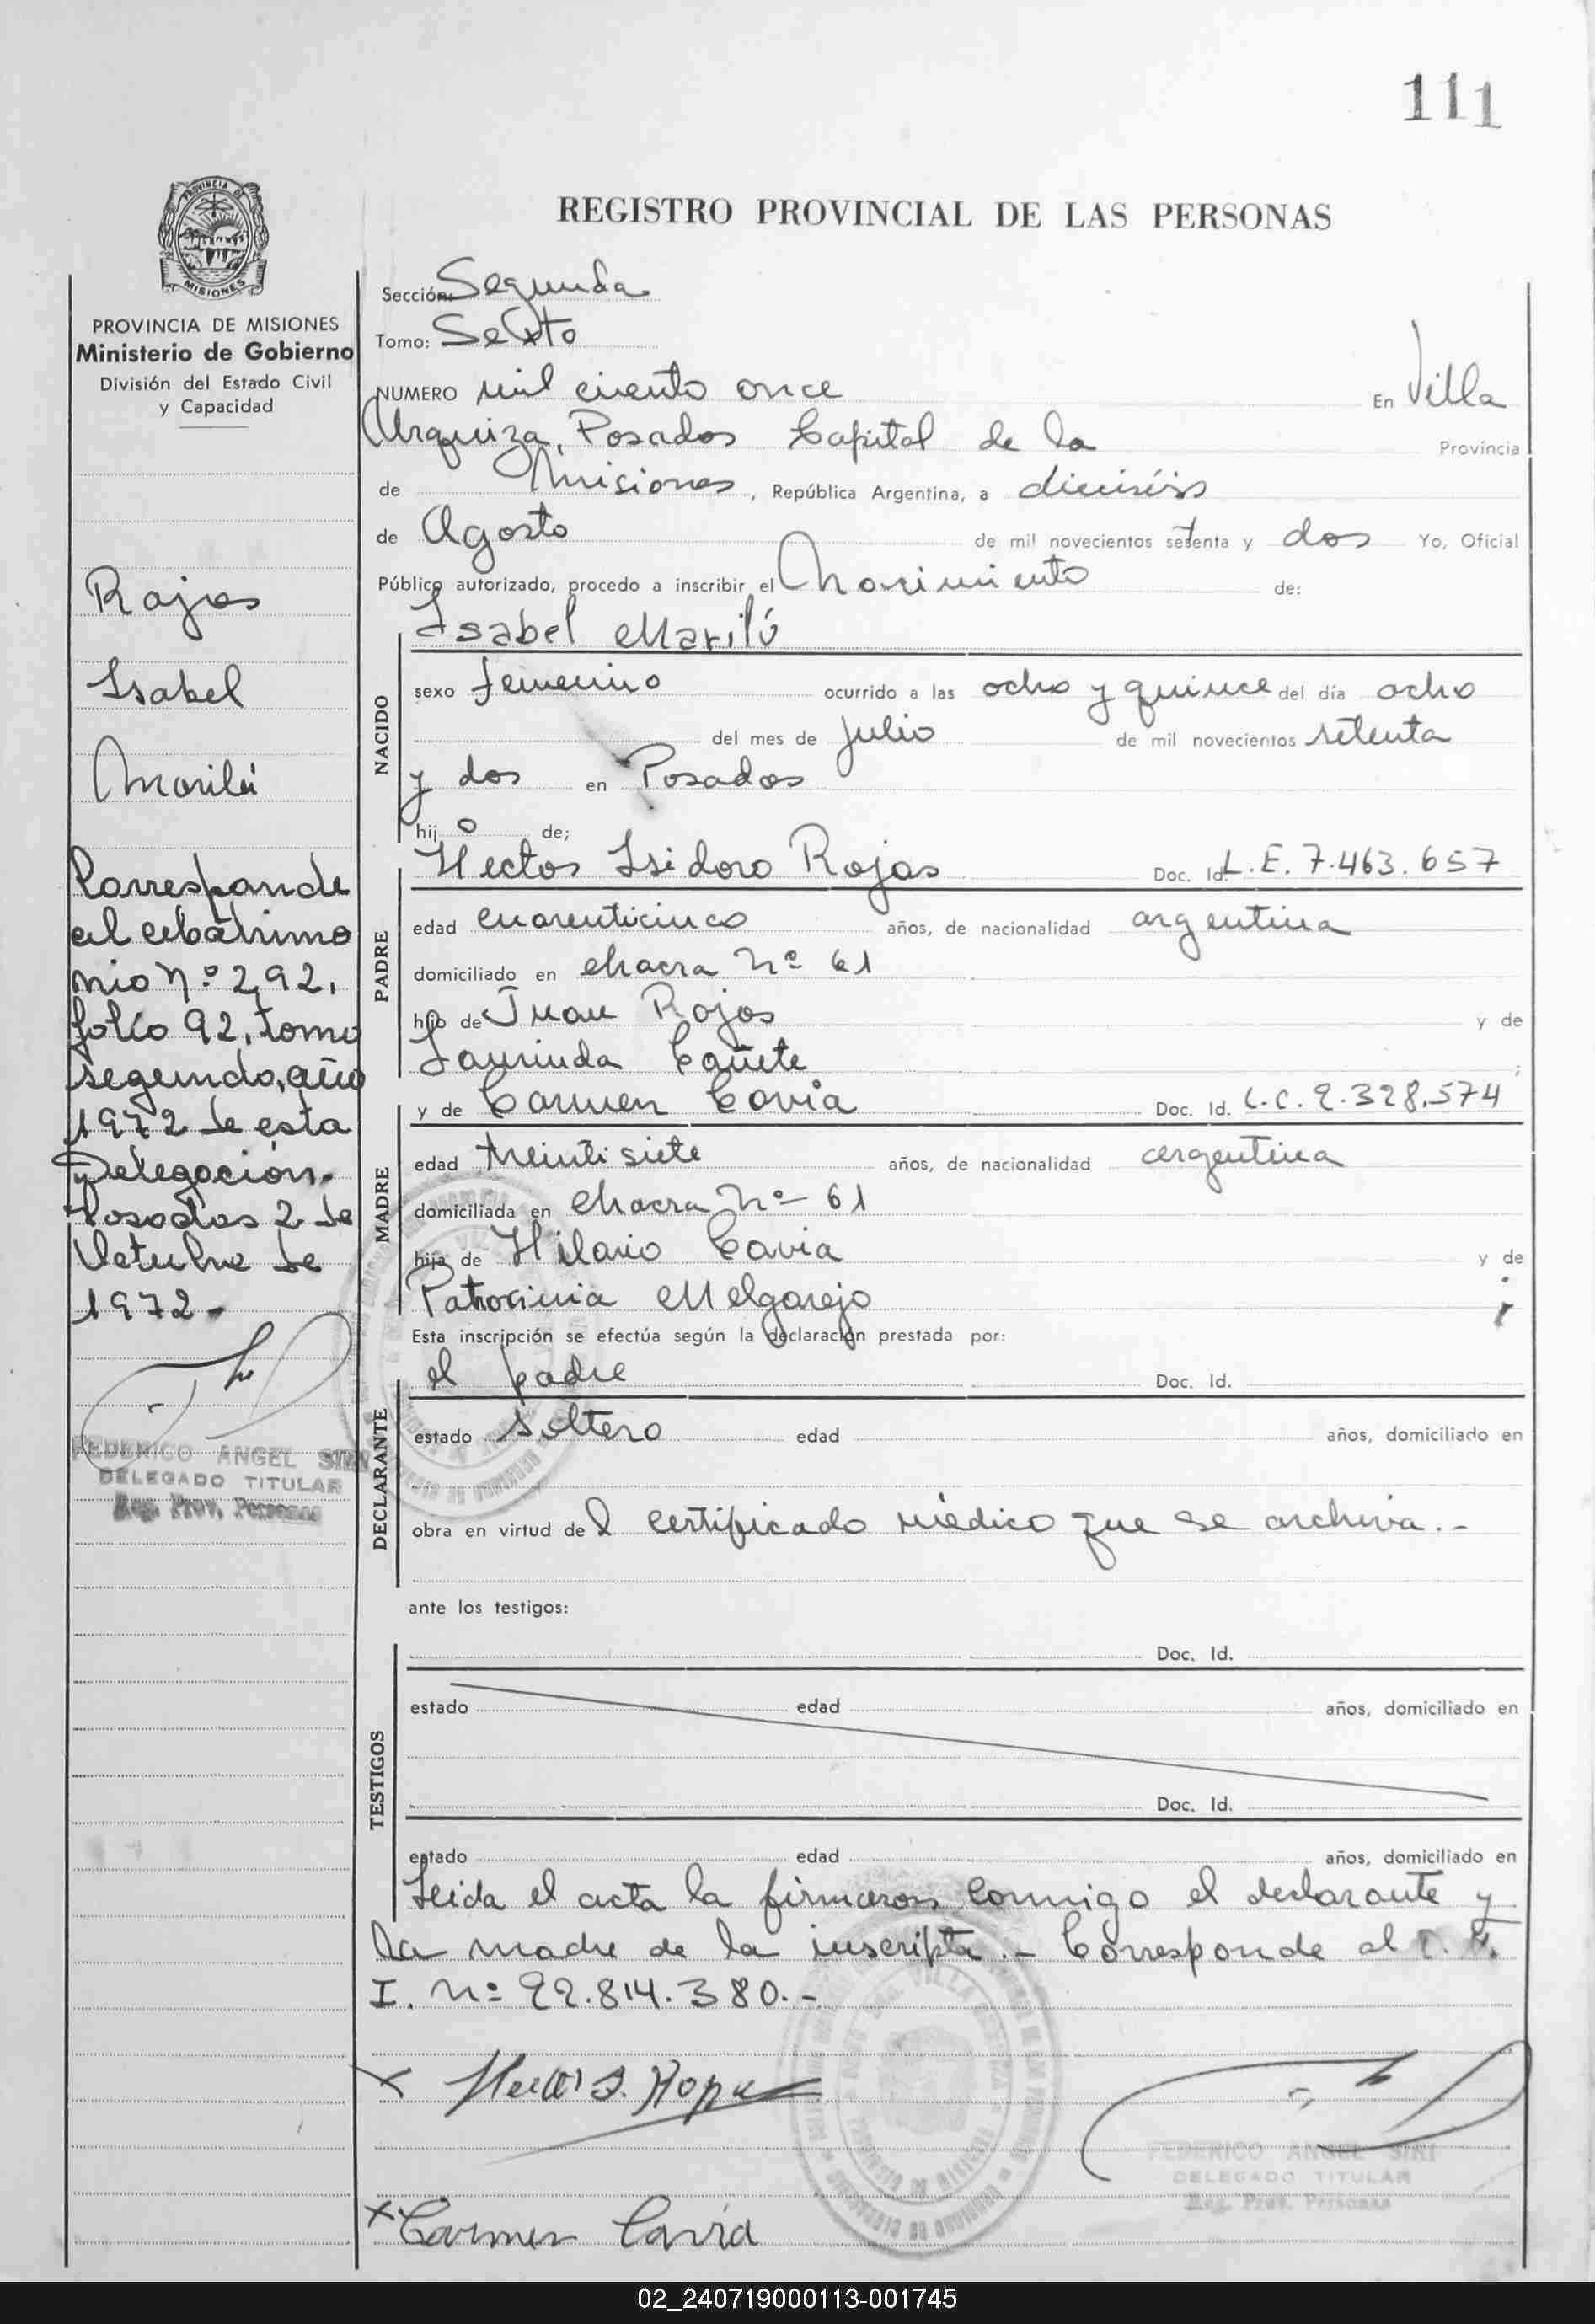 111
REGISTRO PROVINCIAL DE LAS PERSONAS
PROVINCIA DE MISIONES
Ministerio de Gobierno
División del Estado Civil
y Capacidad
Rojas
Isabel
Marilú
Corresponde
al Matrimo
nio Nº 292,
folio 92, tomo
segundo, año
1972 de esta
Delegación.
Posadas 2 de
Octubre de
1972-
FEDERICO ANGEL SINI
DELEGADO TITULAR
Reg. Prov. Personas
Sección: Segunda
Tomo: Sexto
NUMERO mil ciento once En Villa
Urquiza, Posadas Capital de la Provincia
de Misiones, República Argentina, a dieciséis
de Agosto de mil novecientos setenta y dos Yo, Oficial
Público autorizado, procedo a inscribir el Nacimiento de:
Isabel Marilú
NACIDO
sexo femenino ocurrido a las ocho y quince del día ocho
del mes de julio de mil novecientos setenta
y dos en Posadas
hij o de;
Hector Isidoro Rojas Doc. Id. L.E. 7.463.657
PADRE
edad cuarenticinco años, de nacionalidad argentina
domiciliado en chacra Nº 61
hijo de Juan Rojas y de
Laurinda Cañete ;
y de Carmen Cavia Doc. Id. L.C. 2.328.574
MADRE
edad treintisiete años, de nacionalidad argentina
domiciliada en chacra Nº 61
hija de Hilario Cavia y de
Patrocinia Melgarejo ;
Esta inscripción se efectúa según la declaración prestada por:
el padre Doc. Id.
DECLARANTE
estado soltero edad años, domiciliado en
obra en virtud de l certificado médico que se archiva.-
ante los testigos:
Doc. Id.
TESTIGOS
estado edad años, domiciliado en
Doc. Id.
estado edad años, domiciliado en
Leida el acta la firmaron conmigo el declarante y
la madre de la inscripta.- Corresponde al
I. Nº 22.814.380.-
x Hector I. Rojas
FEDERICO ANGEL SINI
DELEGADO TITULAR
Reg. Prov. Personas
x Carmen Cavia
02_240719000113-001745